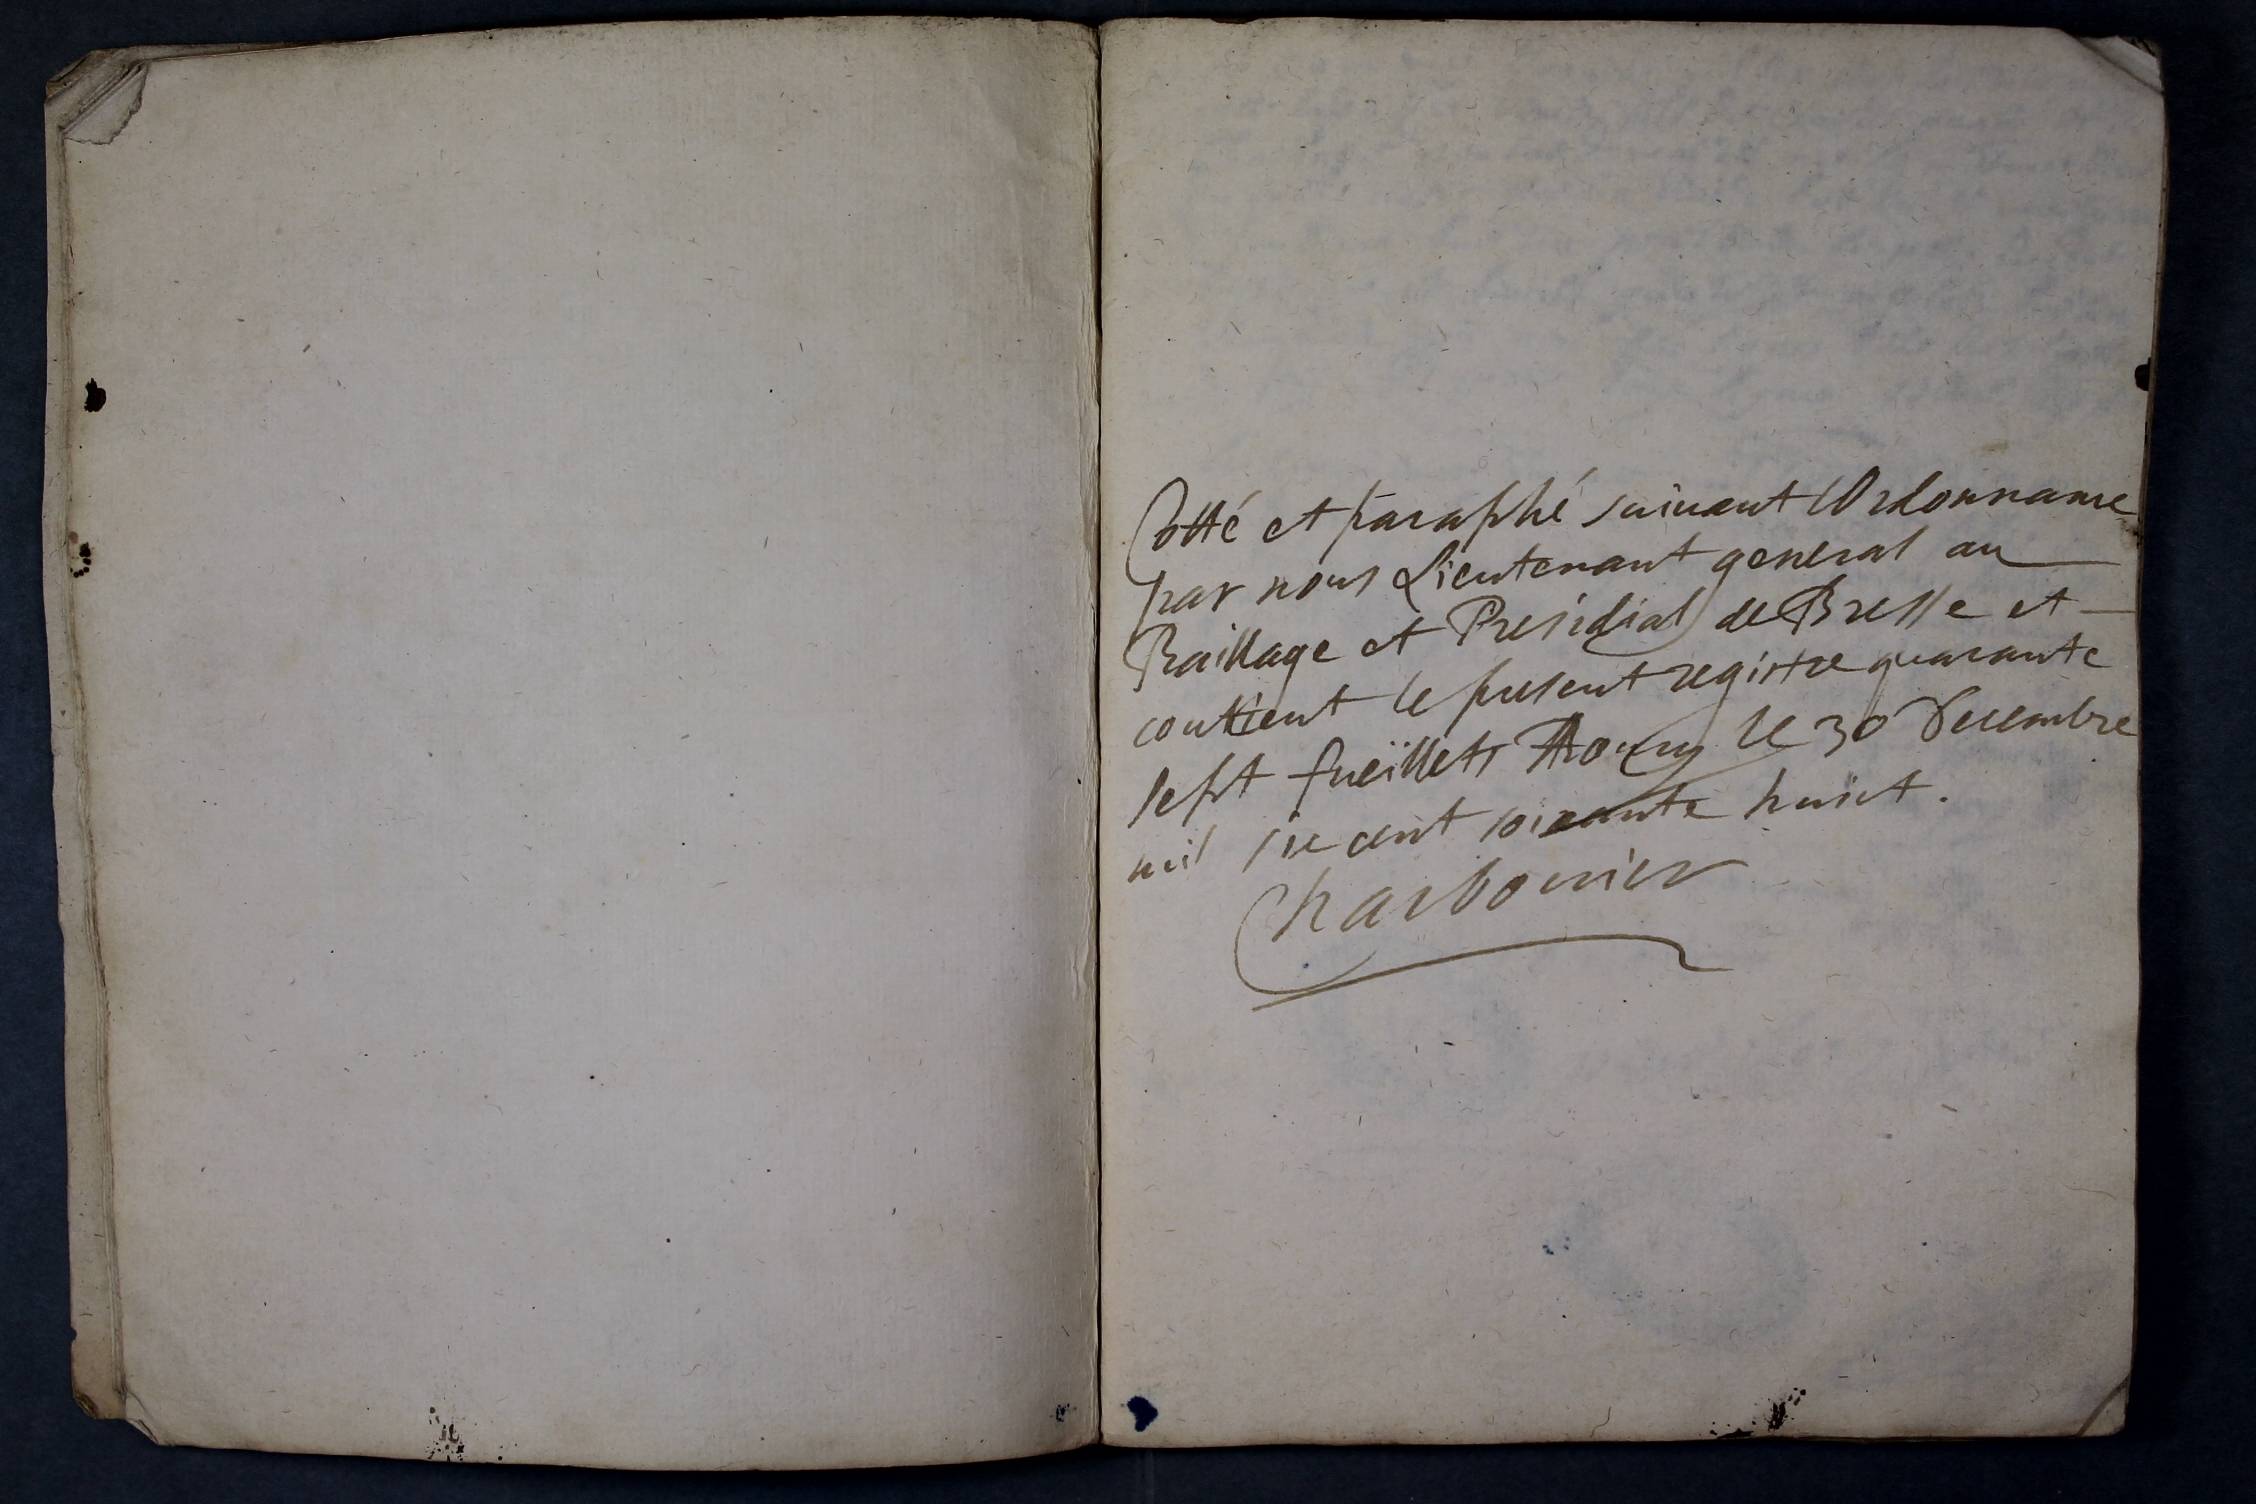 Cotté et paraphé suivant lOrdonnance
par nous Lieutenant general au
Baillage et Presidial de Bresse et
contient le present registre quarante
sept fueillets Bourg le 30 Decembre
mil six cent soixante huict.
Charbonnier